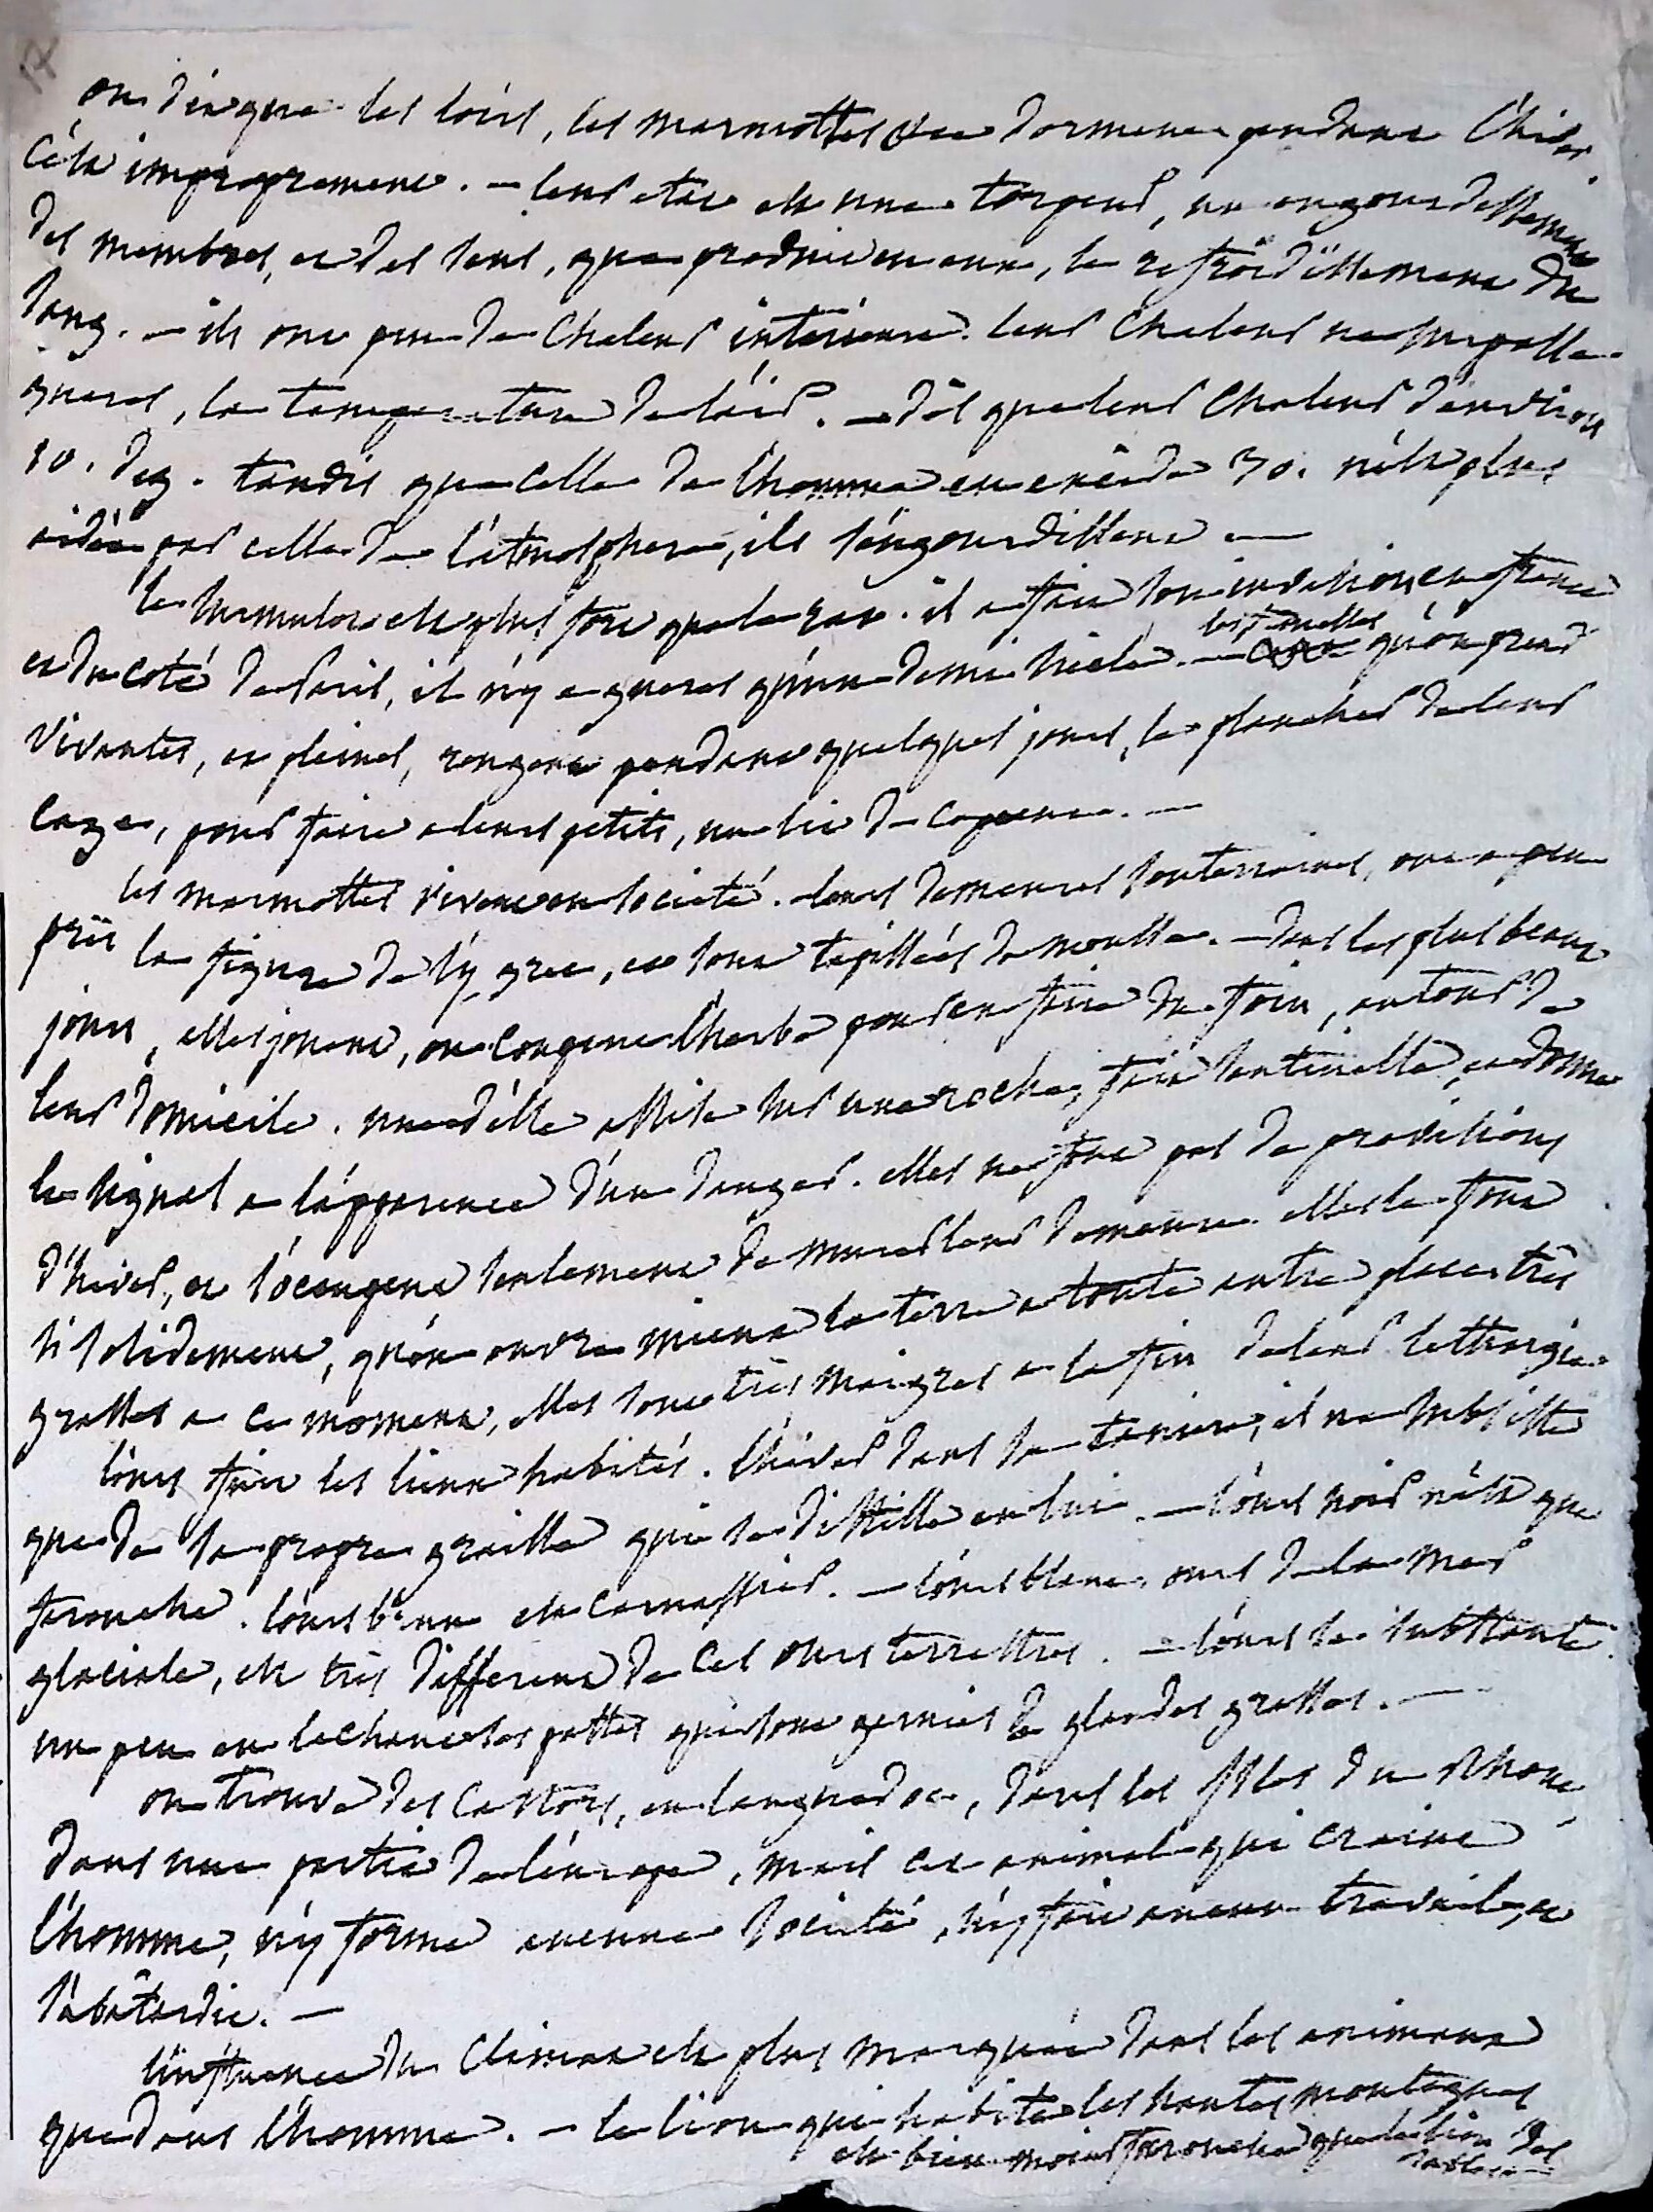 on dit que les loirs, les marmottes &a dorment pendant l'hiver.
c'est improprement. - leur état est une torpeur, un engourdissement
des membres, et des sens, que produit en eux, le refroidissement du
sang. - ils ont peu de chaleur intérieure. leur chaleur ne surpasse
gueres, la temperature de l'air. - dès que leur chaleur d'environ
10. deg. tandis que celle de l'homme en excède 30. n'est plus
aidée par celle de l'atmosphere, ils s'engourdissent -
le surmulot est plus fort que le rat. il a fait son invasion en france
et du coté de Paris, il n'y a gueres qu'un demi siecle. - les femelles qu'on prend
vivantes, et pleines, rongent pendant quelques jours, le plancher de leur
cage, pour faire a leurs petits, un lit de copeaux. -
les marmottes vivent en societé. leurs demeures souterraines, ont a peu
près la figure de l'y grec, et sont tapissées de mousse. - dans les plus beaux
jours, elles jouent, ou coupent l'herbe pour en faire du foin, autour de
leur domicile. une d'elle assise sur une roche, fait sentinelle, et donne
le signal a l'apparence d'un danger. elles ne font pas de provisions
d'hiver, et s'occupent seulement de murer leur demeure. elles le font
si solidement, qu'on ouvre mieux la terre a toute autre place. très
grasses a ce moment, elles sont très maigres a la fin de leur lethargie.
l'ours fuit les lieux habités. l'hiver dans sa taniere, il ne subsiste
que de sa propre graisse qui se distille en lui. - l'ours noir n'est que
farouche. l'ours brun est carnassier. - l'ours blanc, ours de la mer
glaciale, est très different de ces ours terrestres. - l'ours se substante
un peu en lechant ses pattes qui sont garnies de glandes grasses. -
on trouve des castors, en languedoc, dans les isles du Rhone,
dans une partie de l'europe, mais cet animal qui craint
l'homme, n'y forme aucune société, n'y fait aucun travail, et
s'abâtardit. -
l'influence du climat est plus marquée dans les animaux
que dans l'homme. - le lion qui habite les hautes montagnes
est bien moins farouche que le lion des
sables -